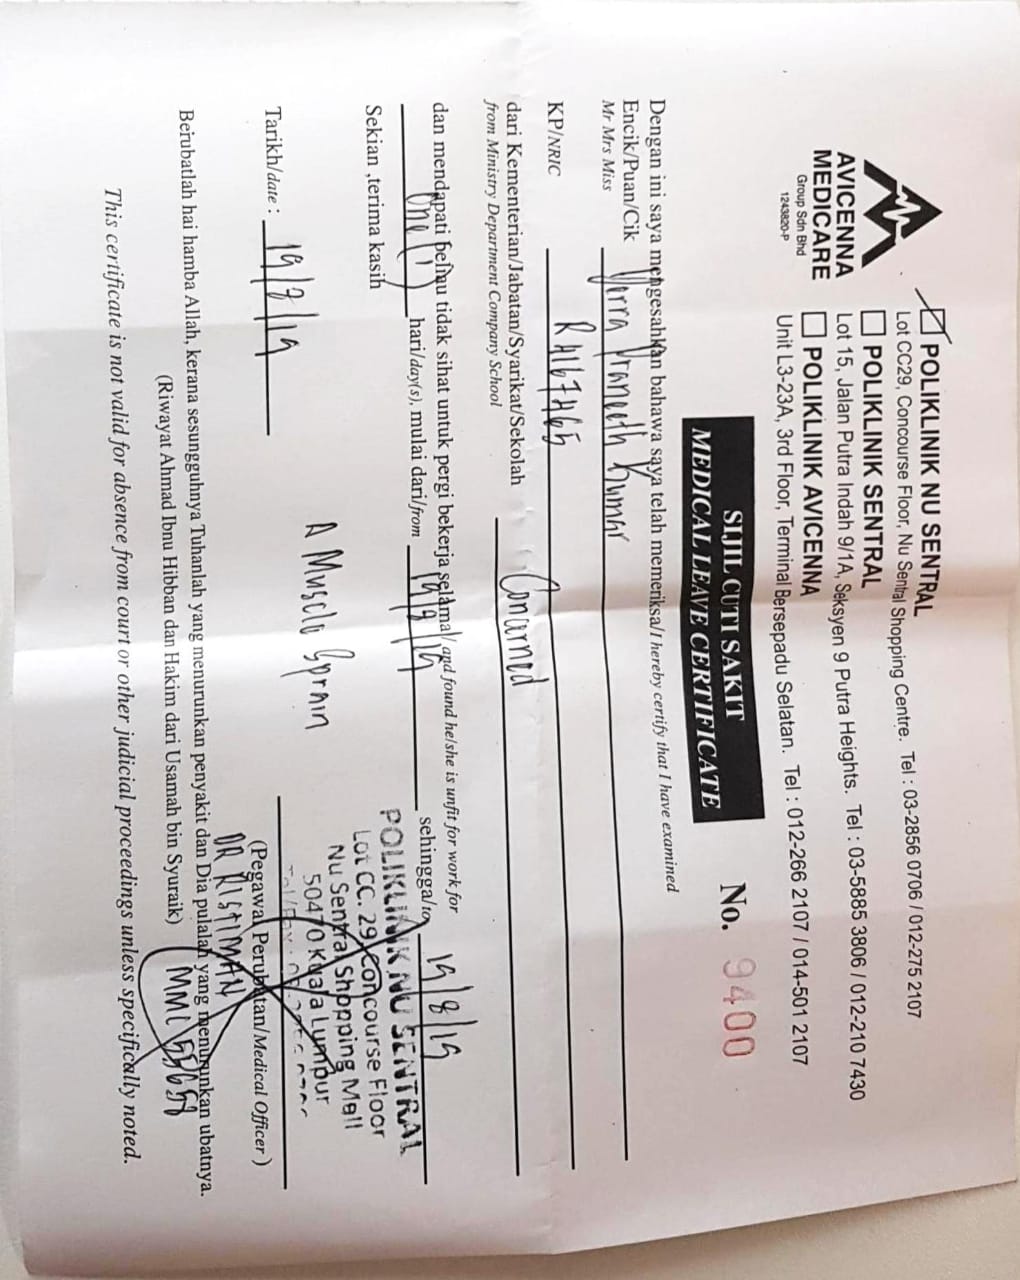 AVICENNA
MEDICARE
Group Sdn Bhd
1243820-P
POLIKLINIK NU SENTRAL
Lot CC29, Concourse Floor, Nu Sentral Shopping Centre. Tel : 03-2856 0706 / 012-275 2107
POLIKLINIK SENTRAL
Lot 15, Jalan Putra Indah 9/1A, Seksyen 9 Putra Heights. Tel : 03-5885 3806 / 012-210 7430
POLIKLINIK AVICENNA
Unit L3-23A, 3rd Floor, Terminal Bersepadu Selatan. Tel : 012-266 2107 / 014-501 2107
SIJIL CUTI SAKIT
MEDICAL LEAVE CERTIFICATE
No. 9400
Dengan ini saya mengesahkan bahawa saya telah memeriksa/I hereby certify that I have examined
Encik/Puan/Cik Yerra Praneeth Kumar
Mr Mrs Miss
KP/NRIC
dari Kementerian/Jabatan/Syarikat/Sekolah
from Ministry Department Company School
dan mendapati beliau tidak sihat untuk pergi bekerja selama/and found he/she is unfit for work for
One (1) hari/day(s), mulai dari/from 19/8/19 sehingga/to 19/8/19
Sekian ,terima kasih
POLIKLINIK NU SENTRAL
Lot CC. 29 Concourse Floor
Nu Sentral Shopping Mall
50470 Kuala Lumpur
A Muscle Sprain
Tarikh/date : 19/8/19
(Pegawai Perubatan/Medical Officer )
DR RUSTIMAN
Berubatlah hai hamba Allah, kerana sesungguhnya Tuhanlah yang menurunkan penyakit dan Dia pulalah yang menurunkan ubatnya.
(Riwayat Ahmad Ibnu Hibban dan Hakim dari Usamah bin Syuraik)
This certificate is not valid for absence from court or other judicial proceedings unless specifically noted.